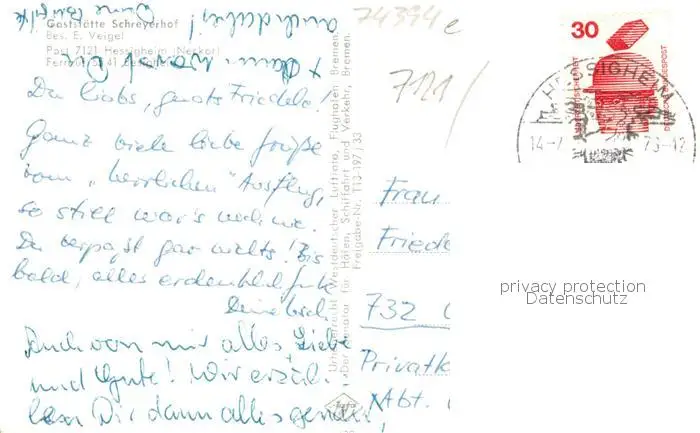 Gaststätte Schreyerhof
Bes. E. Veigel
Post 7121 Hessigheim (Neckar)
Du liebs, guats Friedele!
Ganz viele liebe Grüße
vom "herrlichen" Ausflug,
so still war's noch nie.
Du verpaßt gar nichts! Bis
bald, alles erdenklich Gute
Deine
Auch von mir alles Liebe
und Gute! Wir erzäh-
len Dir dann alles genau,
auch dabei!
74394 e
7121
Urheberrecht Westdeutscher Luftfoto, Flughafen Bremen.
Der Senator für Häfen, Schiffahrt und Verkehr, Bremen.
Freigabe-Nr. T13-197/33
30
DEUTSCHE BUNDESPOST
HESSIGHEIM
14-7
73-12
Frau
Friede
732
Privatk
Abt.
privacy protection
Datenschutz